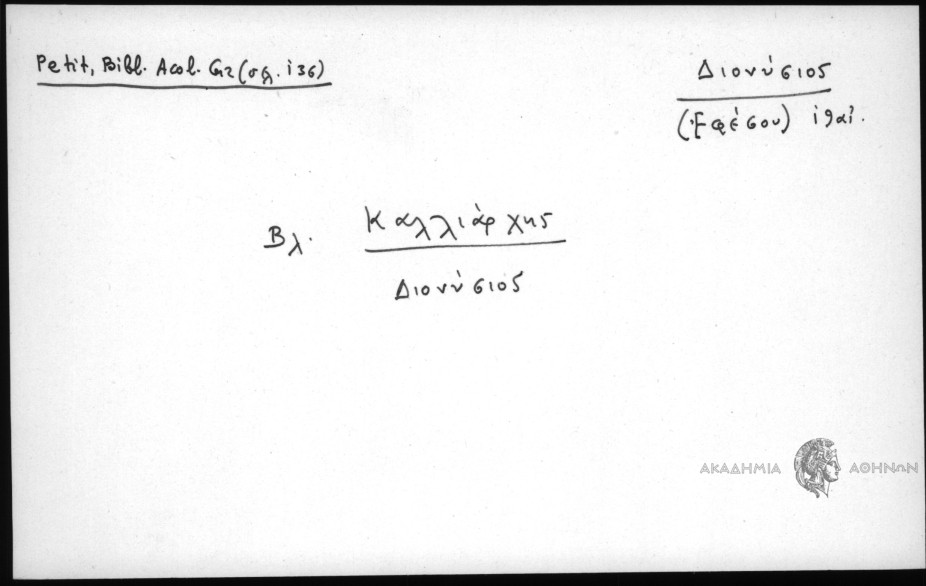 Petit, Bibl. Acol. Gr (σελ. 136)
Διονύσιος
(Ἐφέσου) ιθαι.
Βλ. Καλλιάρχης
Διονύσιος
ΑΚΑΔΗΜΙΑ ΑΘΗΝΩΝ